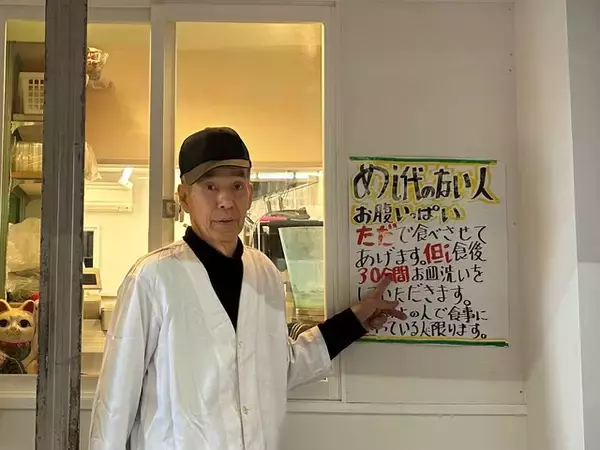 めし代のない人
お腹いっぱい
ただで食べさせて
あげます。但し食後
30分間お皿洗いを
していただきます。
の人で食事に
っている人に限ります。